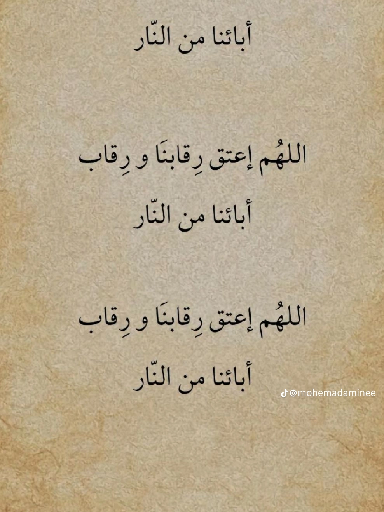 أبائنا من النّار
اللهُم إعتق رِقابنَا و رِقاب
أبائنا من النّار
اللهُم إعتق رِقابنَا و رِقاب
أبائنا من النّار
@mohemadaminee